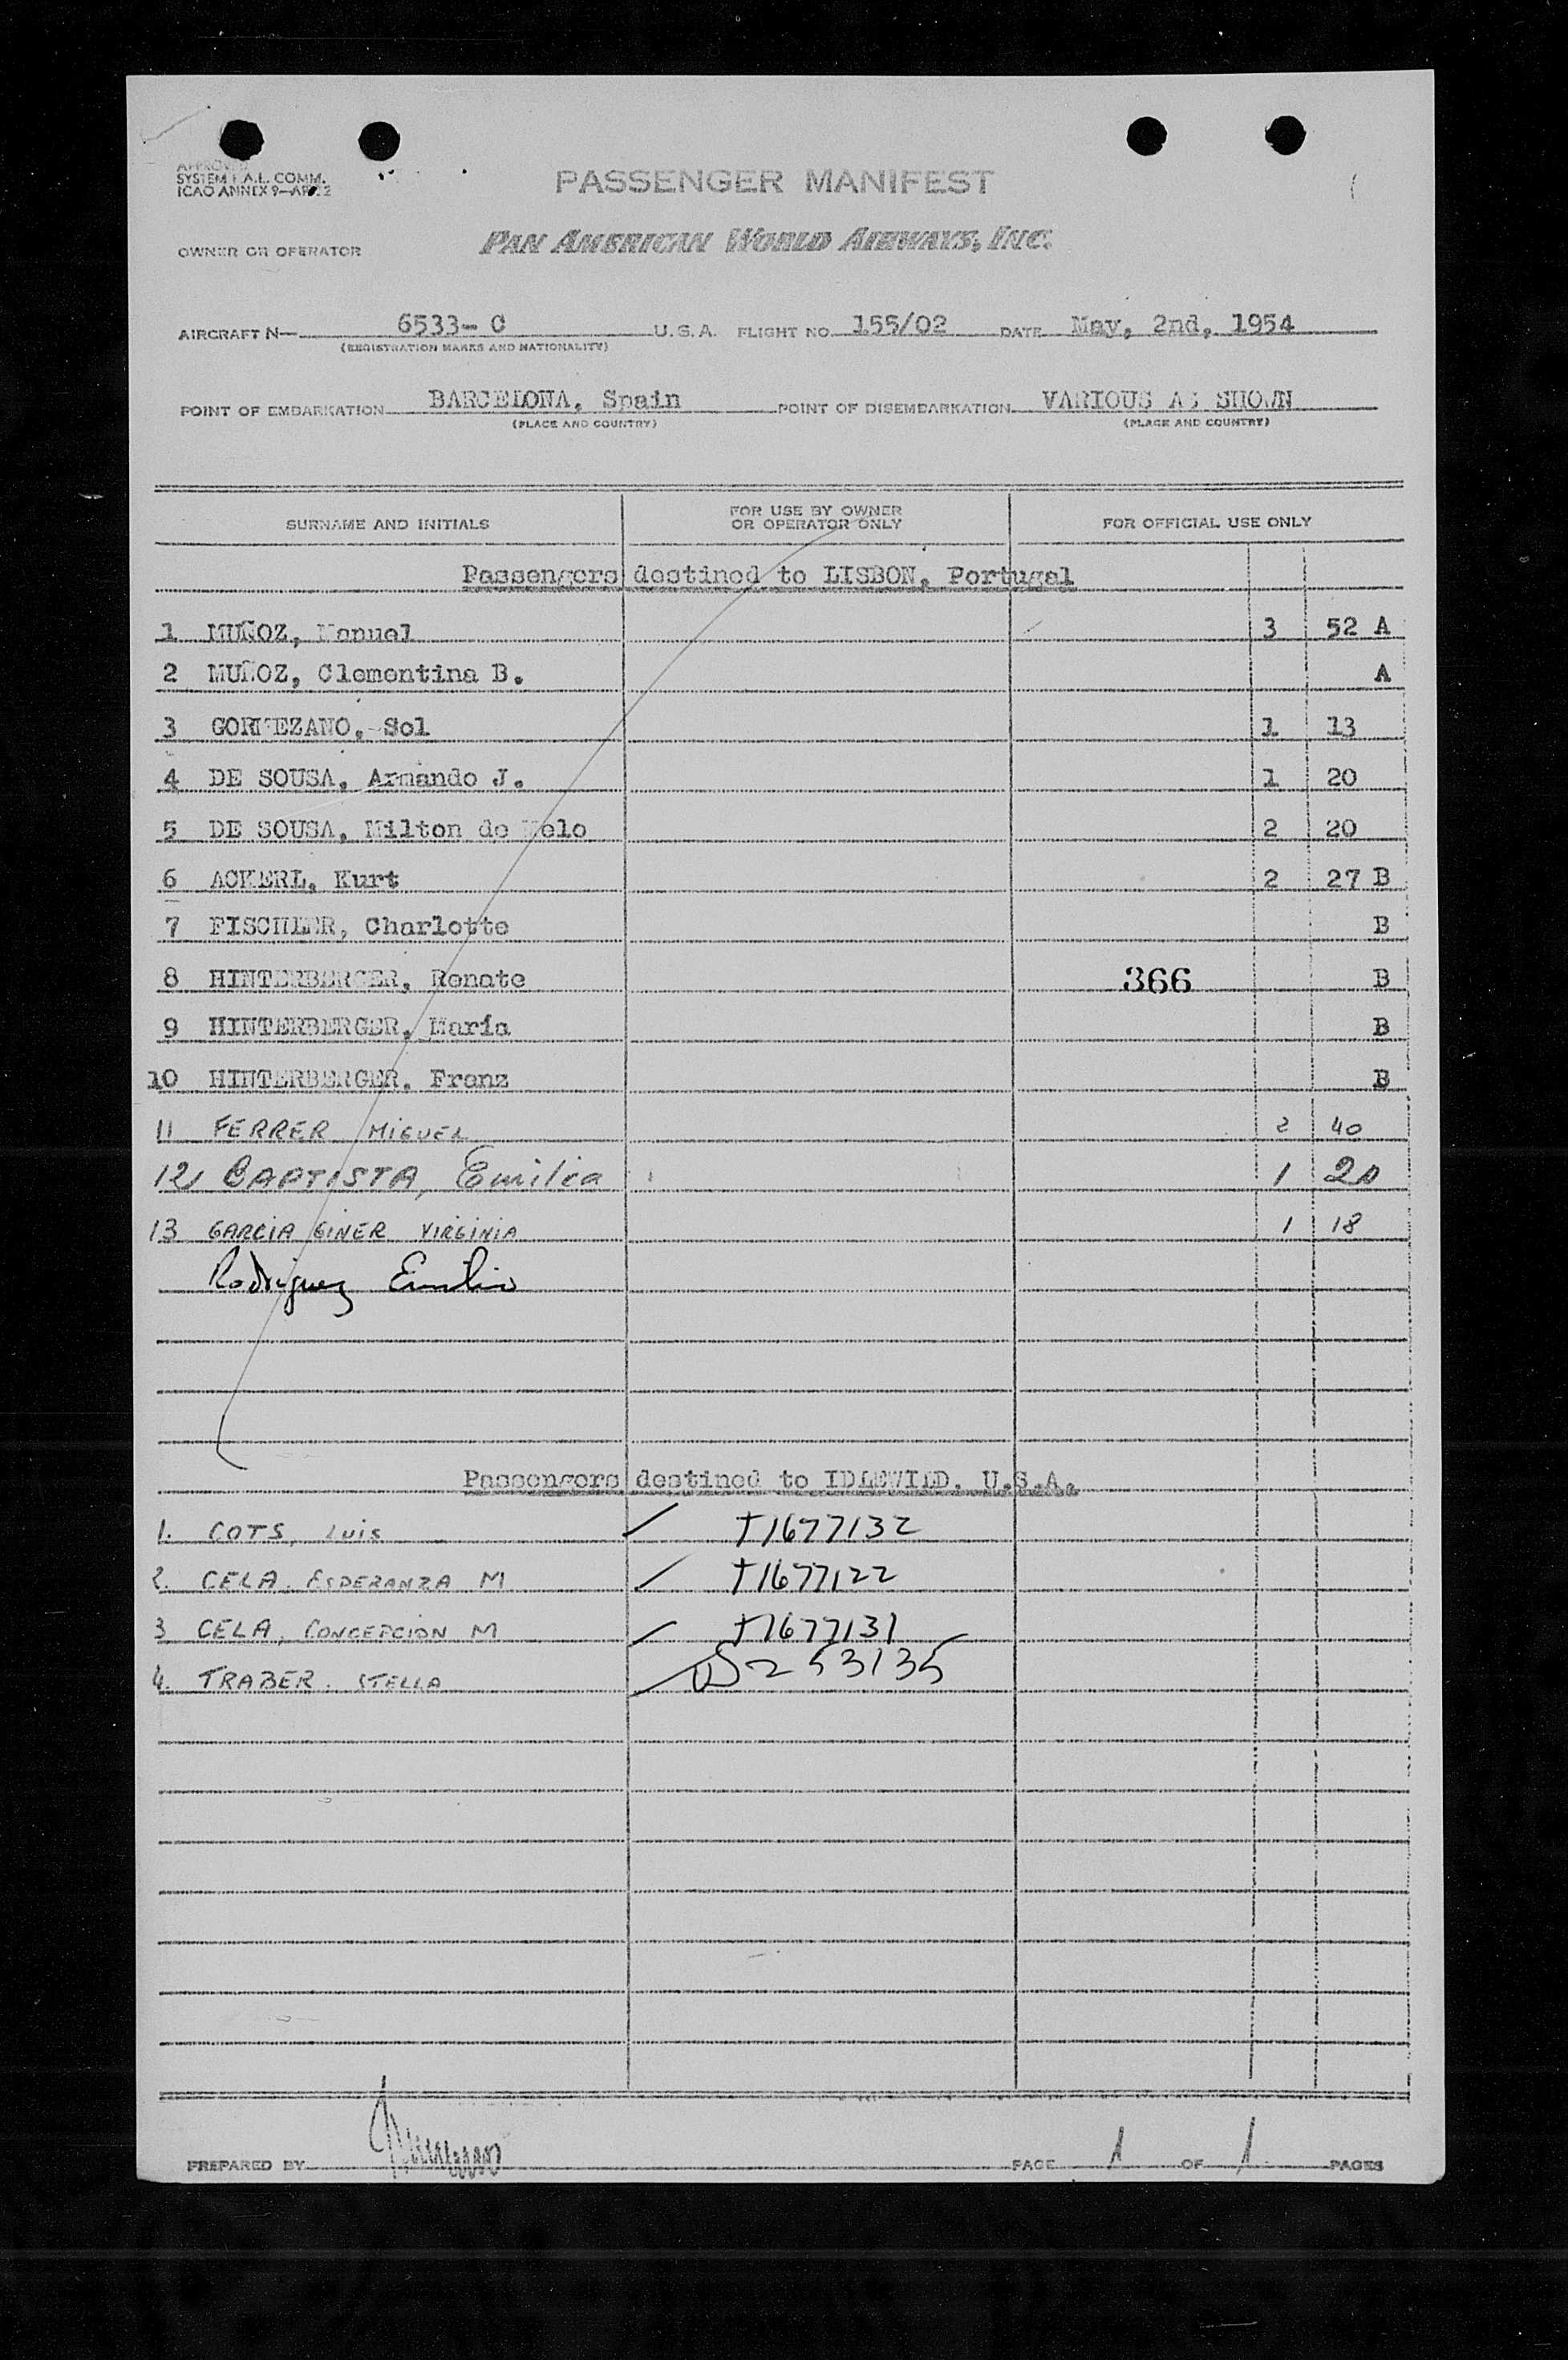 APPROVED
SYSTEM F.A.L. COMM.
ICAO ANNEX 9—AP. 2
PASSENGER MANIFEST
OWNER OR OPERATOR PAN AMERICAN WORLD AIRWAYS, INC.
AIRCRAFT N— 6533- C U.S.A. FLIGHT NO. 155/02 DATE May, 2nd, 1954
(REGISTRATION MARKS AND NATIONALITY)
POINT OF EMBARKATION BARCELONA, Spain POINT OF DISEMBARKATION VARIOUS AS SHOWN
(PLACE AND COUNTRY) (PLACE AND COUNTRY)
SURNAME AND INITIALS FOR USE BY OWNER OR OPERATOR ONLY FOR OFFICIAL USE ONLY
Passengers destined to LISBON, Portugal
1 MUÑOZ, Manuel 3 52 A
2 MUÑOZ, Clementina B. A
3 GORMEZANO, Sol 1 13
4 DE SOUSA, Armando J. 1 20
5 DE SOUSA, Milton de Melo 2 20
6 ACKERL, Kurt 2 27 B
7 FISCHLER, Charlotte B
8 HINTERBERGER, Renate 366 B
9 HINTERBERGER, Maria B
10 HINTERBERGER, Franz B
11 FERRER MIGUEL 2 40
12 BAPTISTA, Emilia 1 20
13 GARCIA GINER VIRGINIA 1 18
Rodriguez Emilio
Passengers destined to IDLEWILD, U.S.A.
1. COTS, LUIS T1677132
2. CELA, ESPERANZA M T1677122
3 CELA, CONCEPCION M T1677131
4. TRABER. STELLA US253135
PREPARED BY PAGE 1 OF 1 PAGES